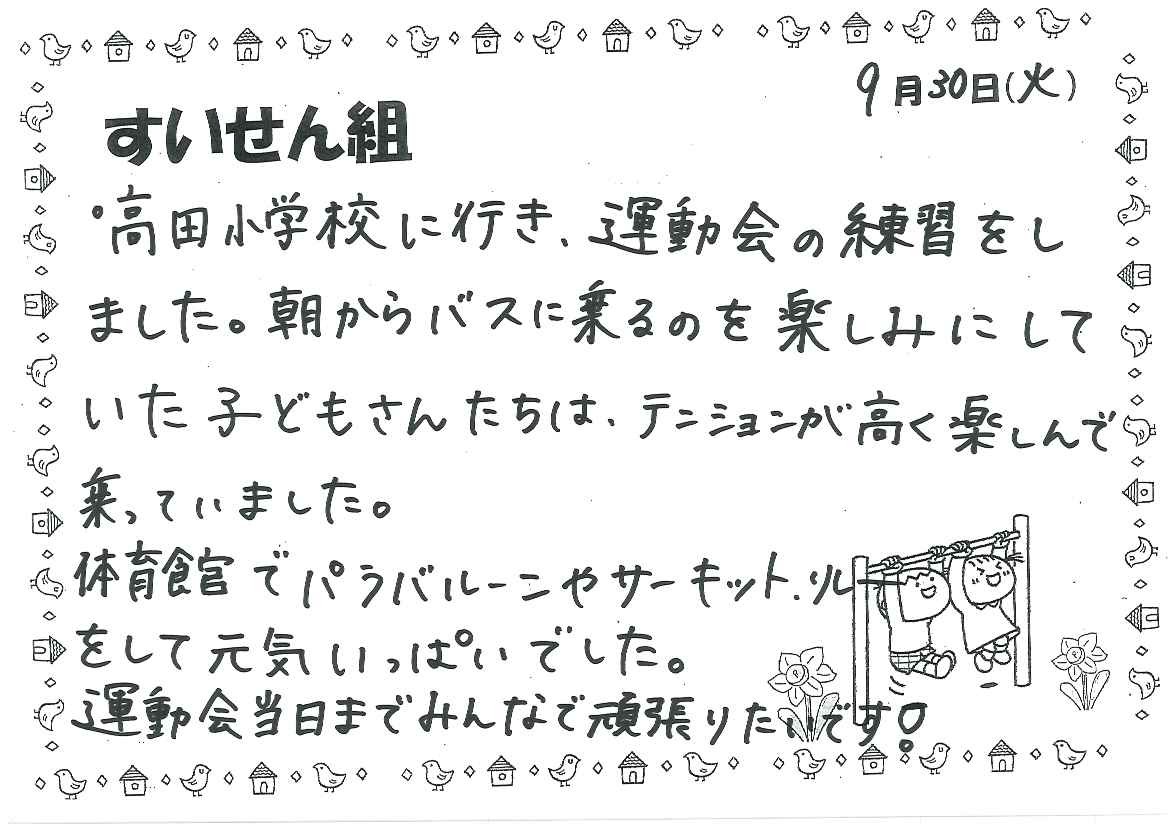 9月30日(火)
すいせん組
°高田小学校に行き、運動会の練習をし
ました。朝からバスに乗るのを楽しみにして
いた子どもさんたちは、テンションが高く楽しんで
乗っていました。
体育館でパラバルーンやサーキット、リレー
をして元気いっぱいでした。
運動会当日までみんなで頑張りたいです!